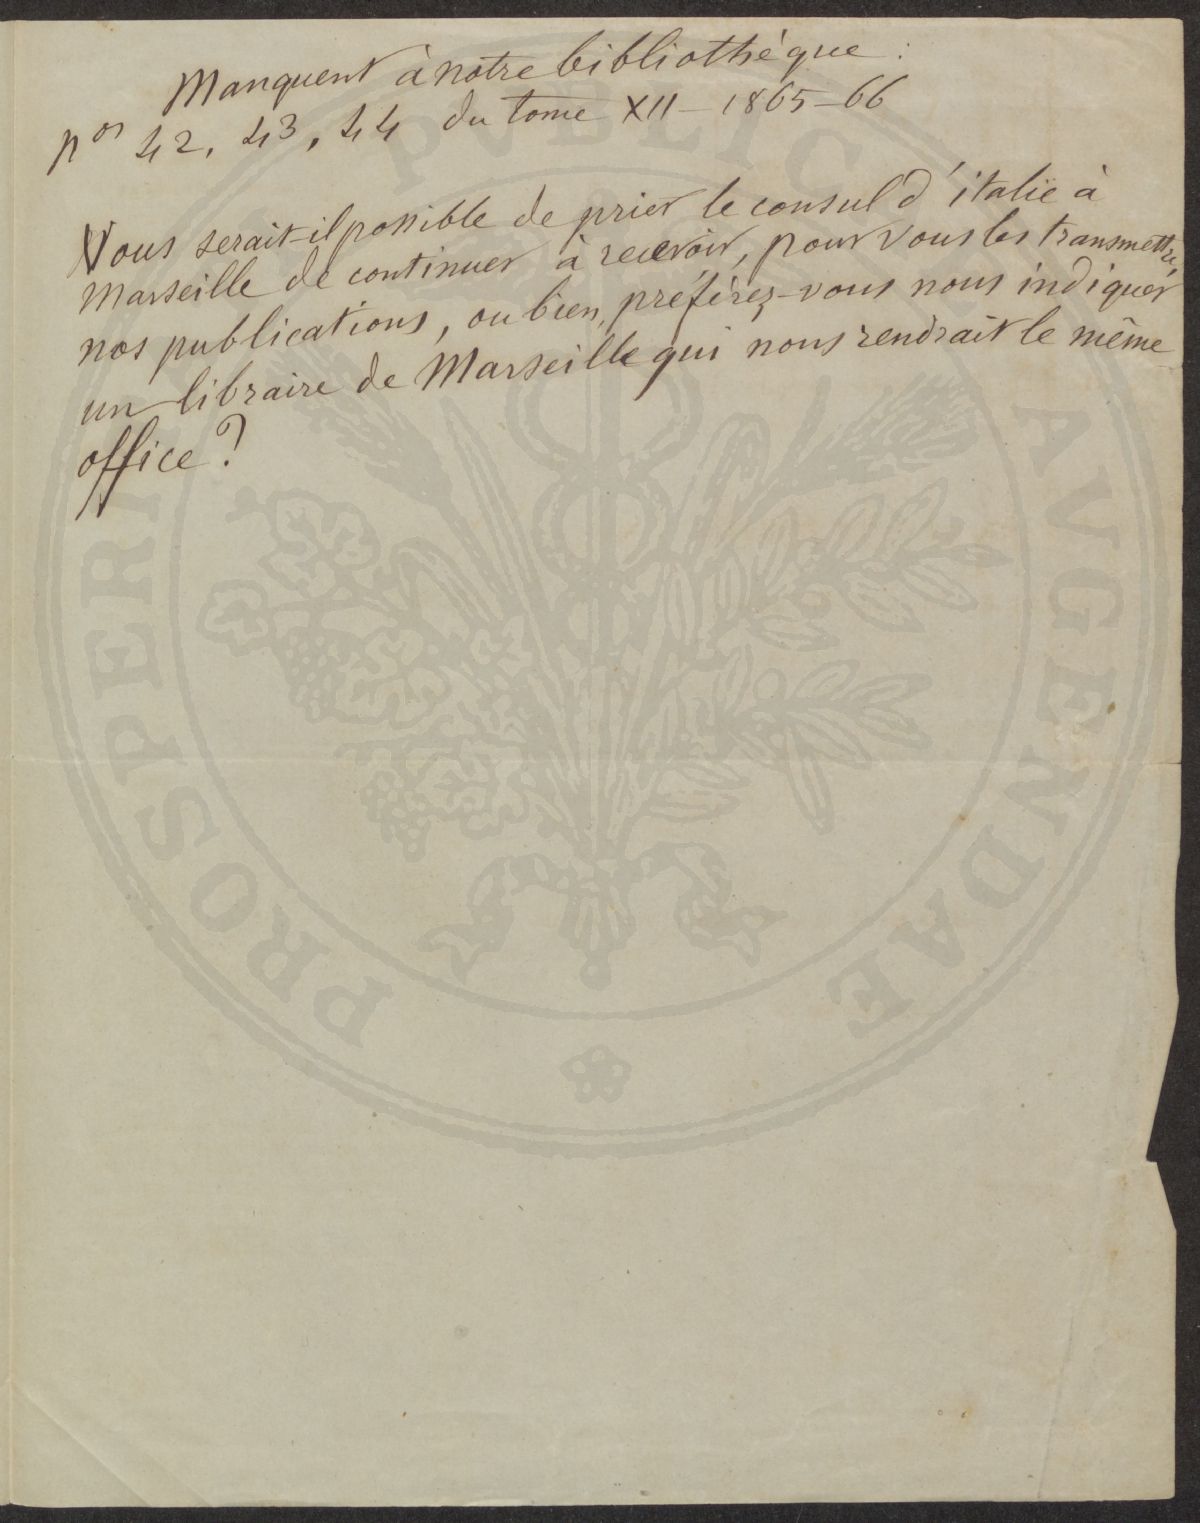 Manquent à notre bibliothèque :
nos 42, 43, 44 du tome XII – 1865–66
Vous serait-il possible de prier le consul d'italie à
Marseille de continuer à recevoir, pour vous les transmettre,
nos publications, ou bien, préférez-vous nous indiquer
un libraire de Marseille qui nous rendrait le même
office ?
PROSPERITATI PVBLICAE AVGENDAE